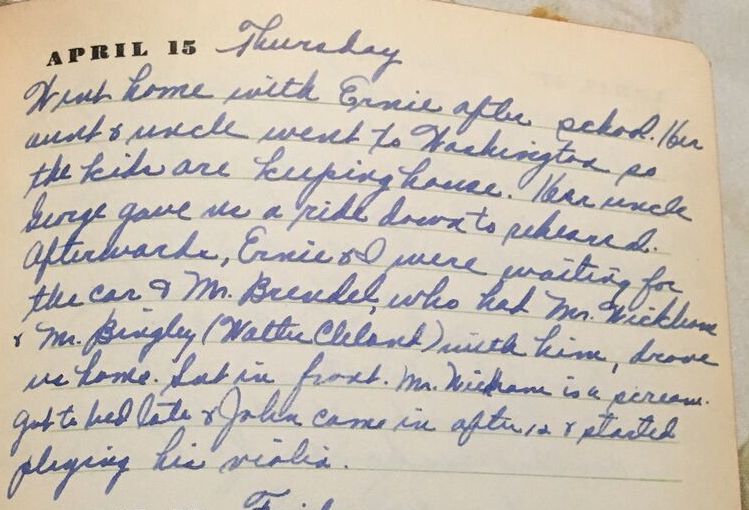 APRIL 15 Thursday
Went home with Ernie after school. Her
aunt & uncle went to Washington so
the kids are keeping house. Her uncle
George gave us a ride down to rehearsal.
Afterwards, Ernie & I were waiting for
the car & Mr. Brendel, who had Mr. Wickham
& Mr. Bingley (Walter Cleland) with him, drove
us home. Sat in front. Mr. Wickham is a scream.
Got to bed late & John came in after 12 & started
playing his violin.